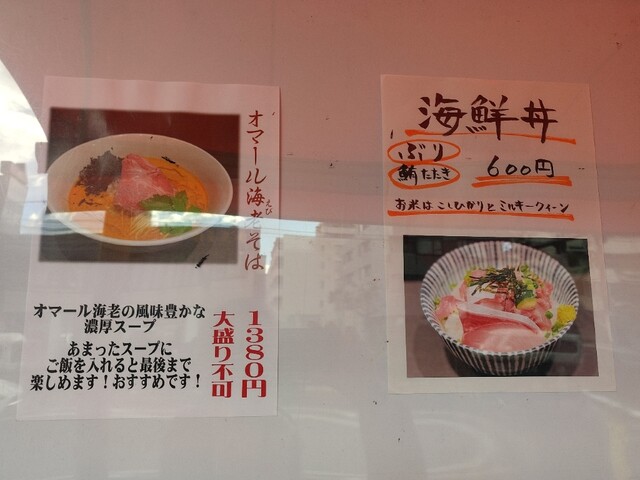 オマール海老そば
えび
オマール海老の風味豊かな
濃厚スープ
あまったスープに
ご飯を入れると最後まで
楽しめます！おすすめです！
1380円
大盛り不可
海鮮丼
ぶり
鮪たたき
600円
お米はこしひかりとミルキークィーン